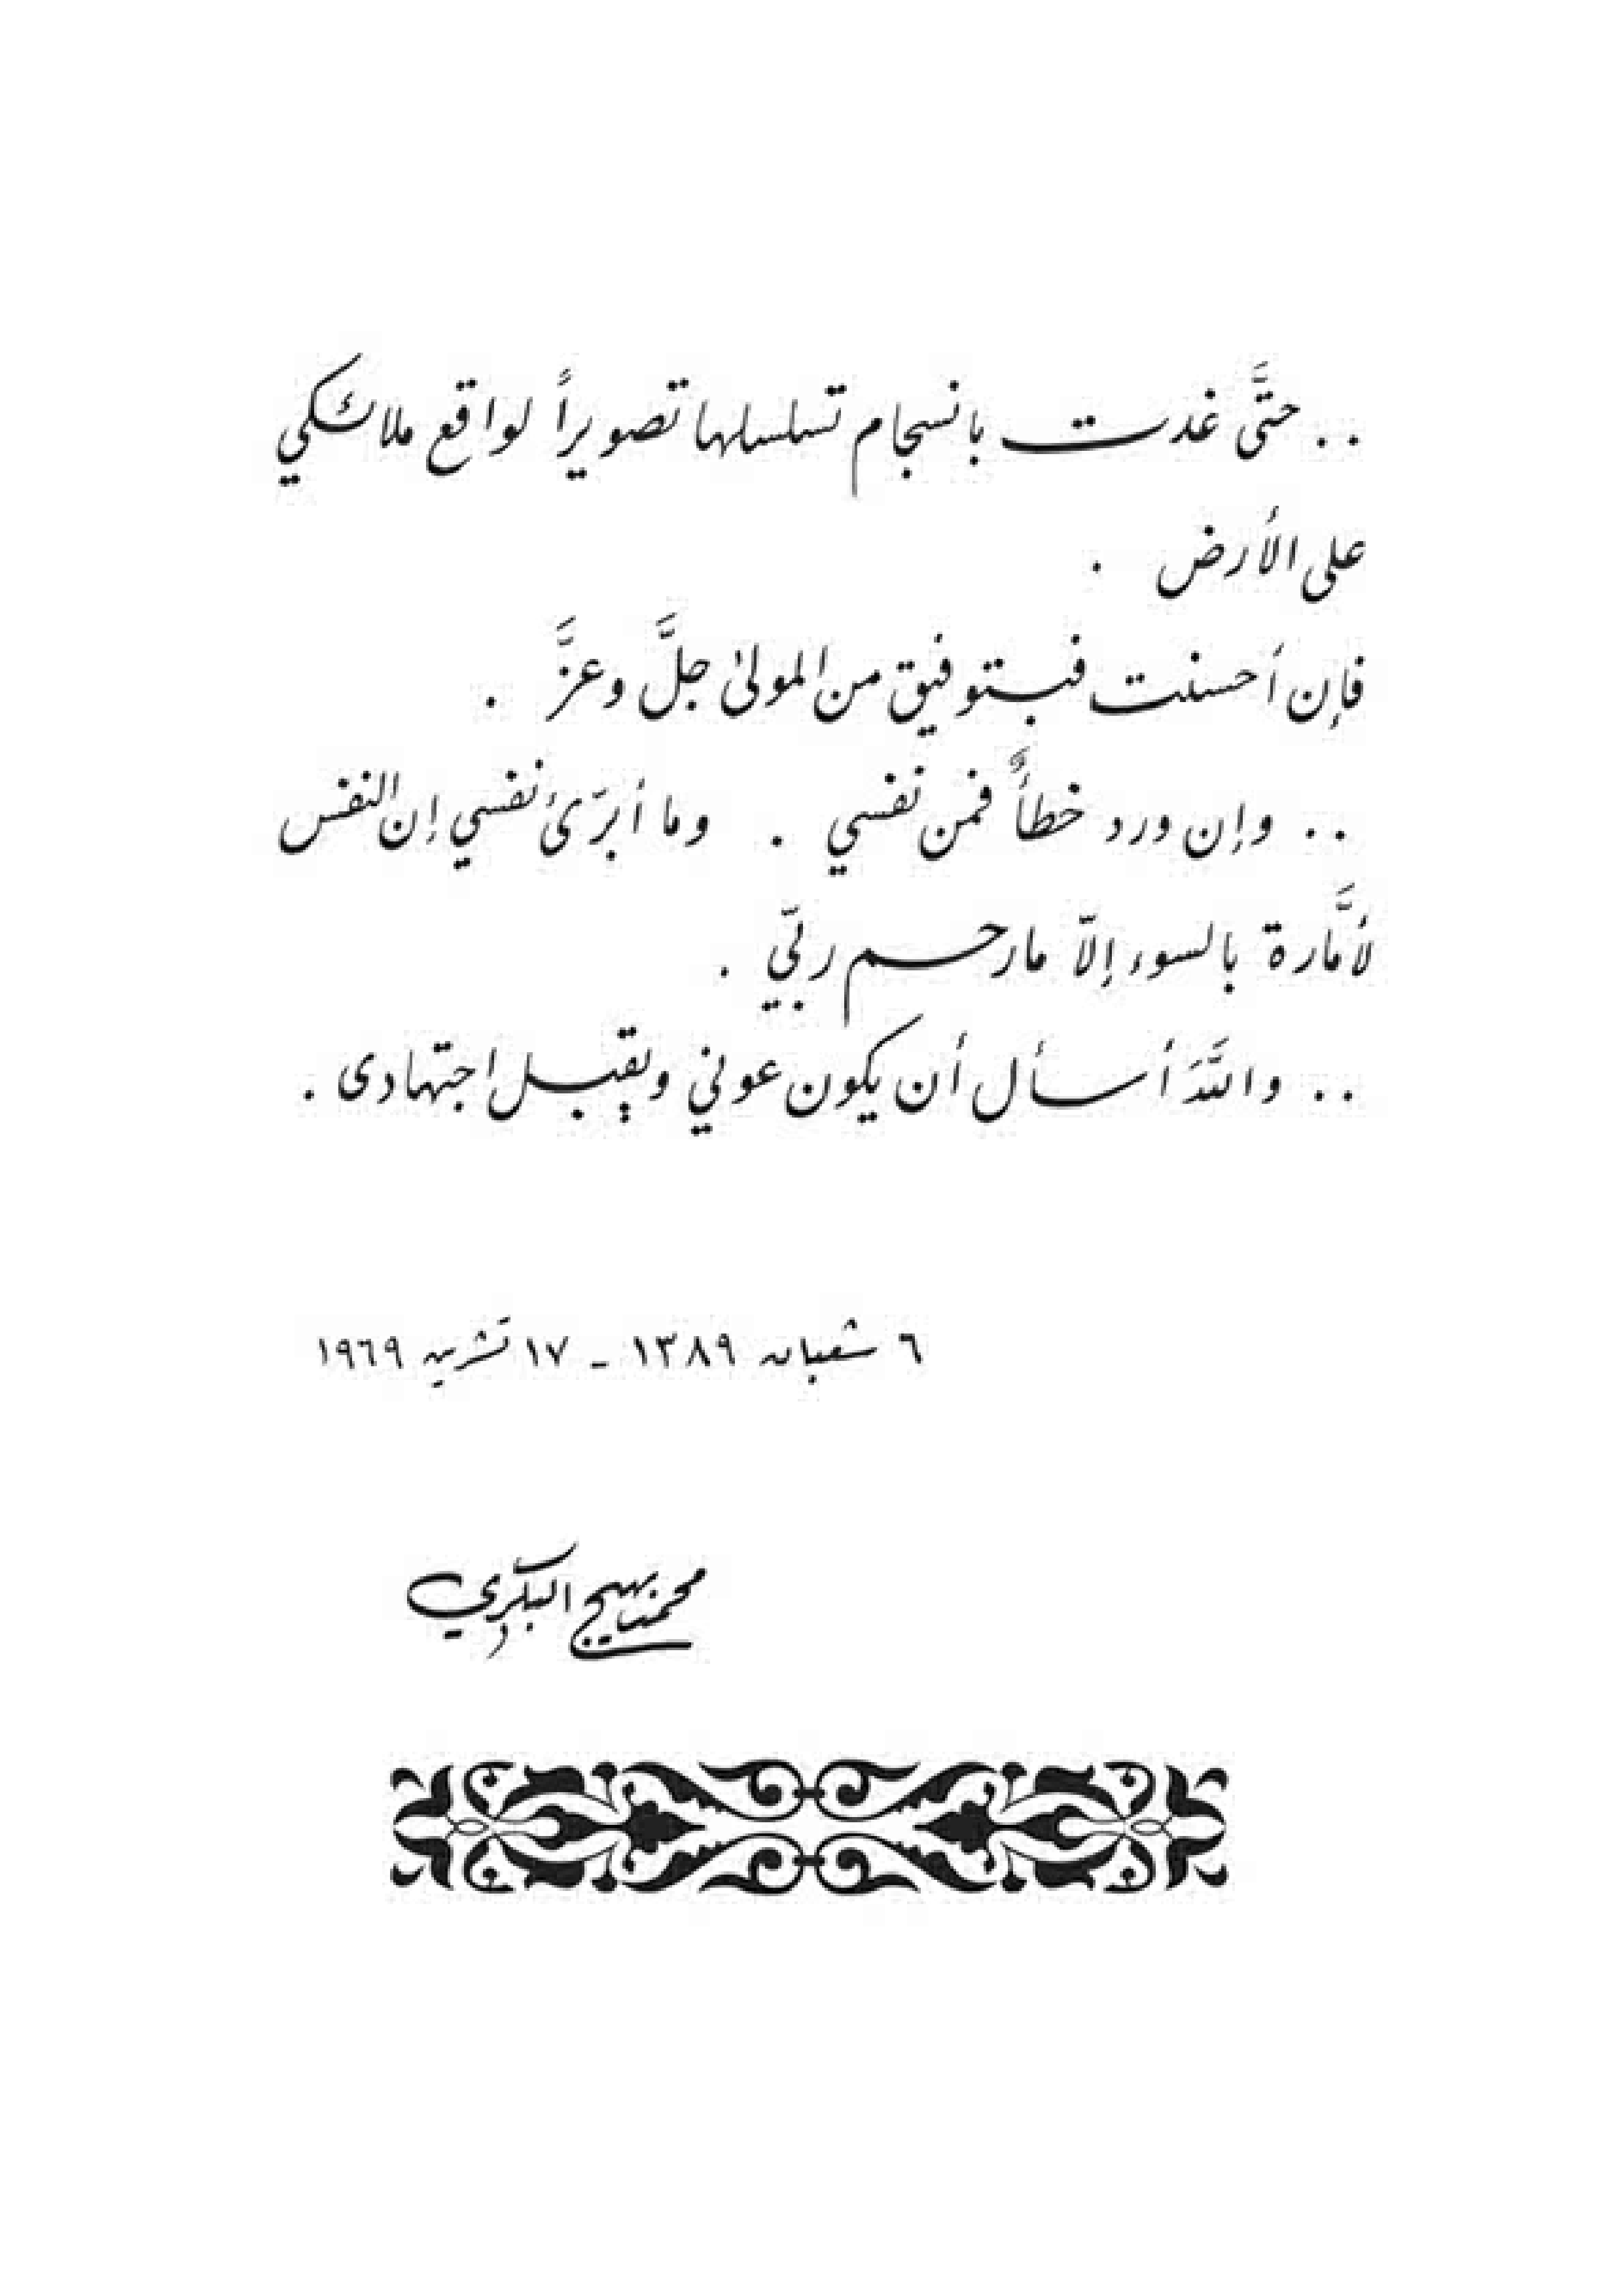 .. حتَّى غدت بانسجام تسلسلها تصويراً لواقع ملائكي
على الأرض .
فإن أحسنت فبتوفيق من المولىٰ جلَّ وعزَّ .
.. وإن ورد خطأً فمن نفسي . وما أبرّئ نفسي إن النفس
لأمَّارة بالسوء إلاّ ما رحم ربّي .
.. واللَّهَ أسأل أن يكون عوني ويقبل اجتهادى .
٦ شعبان ١٣٨٩ - ١٧ تشرين ١٩٦٩
محمد بهيج البكري